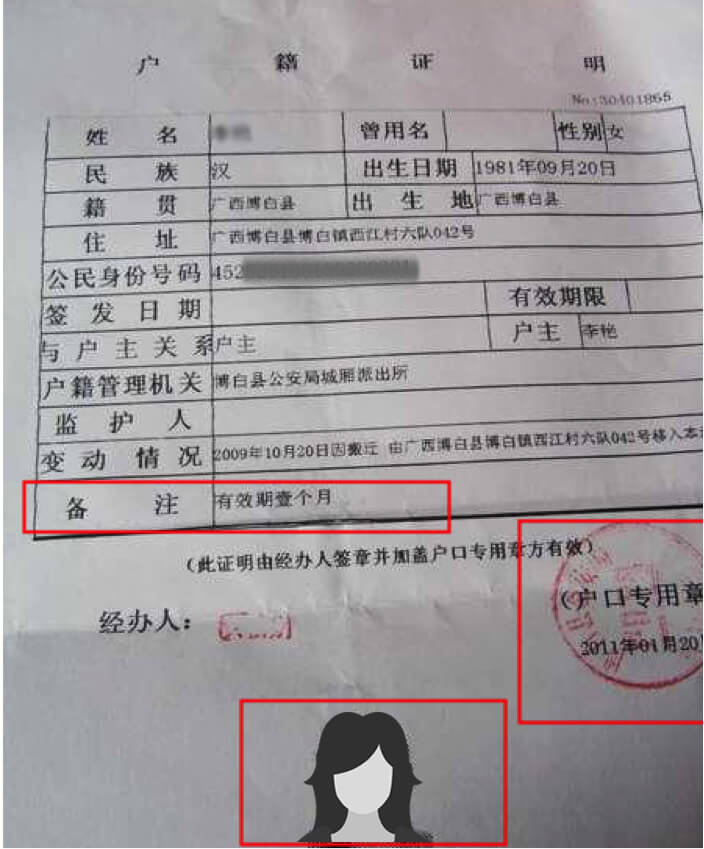 户籍证明
No:30401865
姓名 曾用名 性别 女
民族 汉 出生日期 1981年09月20日
籍贯 广西博白县 出生地 广西博白县
住址 广西博白县博白镇西江村六队042号
公民身份号码 452
签发日期 有效期限
与户主关系 户主 户主 李艳
户籍管理机关 博白县公安局城厢派出所
监护人
变动情况 2009年10月20日因搬迁 由广西博白县博白镇西江村六队042号移入本
备注 有效期壹个月
(此证明由经办人签章并加盖户口专用章方有效)
(户口专用章
经办人:
2011年01月20